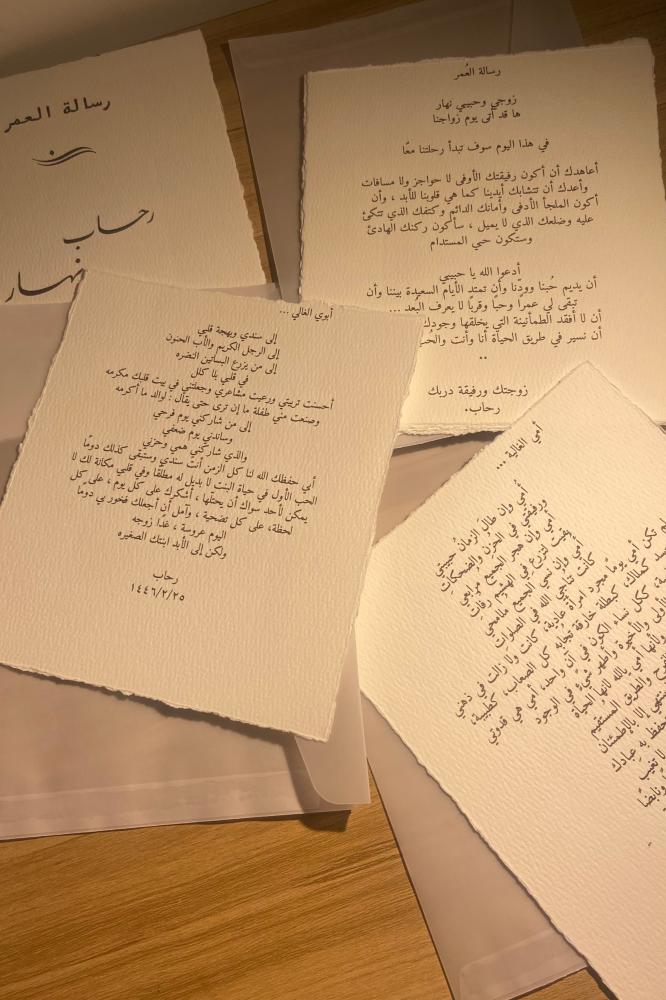 رسالة العمر
رحاب
نهار
رسالة العُمر
زوجي وحبيبي نهار
ها قد أتى يوم زواجنا
في هذا اليوم سوف تبدأ رحلتنا معًا
أعاهدك أن أكون رفيقتك الأوفى لا حواجز ولا مسافات
وأعدك أن تتشابك أيدينا كما هي قلوبنا للأبد ، وأن
أكون الملجأ الأدفى وأمانك الدائم وكتفك الذي تتكئ
عليه وضلعك الذي لا يميل ، سأكون ركنك الهادئ
وستكون حبي المستدام
أدعوا الله يا حبيبي
أن يديم حُبنا وودّنا وأن تمتد الأيام السعيدة بيننا وأن
تبقى لي عمرًا وحبًا وقربًا لا يعرف البُعد ...
أن لا أفقد الطمأنينة التي يخلقها وجودك
أن نسير في طريق الحياة أنا وأنت والحُب
..
زوجتك ورفيقة دربك
رحاب.
أبوي الغالي ...
إلى سندي وبهجة قلبي
إلى الرجل الكريم والأب الحنون
إلى من يزرع البساتين النضره
في قلبي بلا كلل
أحسنت تربيتي ورعيت مشاعري وجعلتني في بيت قلبك مكرمه
وصنعت مني طفلة ما إن ترى حتى يقال : لوالد ما أكرمه
إلى من شاركني يوم فرحي
وساندني يوم ضعفي
والذي شاركني همي وحزني
أبي حفظك الله لنا كل الزمن أنت سندي وستبقى كذلك دومًا
الحب الأول في حياة البنت لا بديل له مطلقًا وفي قلبي مكانة لك لا
يمكن لأحد سواك أن يحتلها ، أشكرك على كل يوم ، على كل
لحظة، على كل تضحية ، وآمل أن أجعلك فخور بي دومًا
اليوم عروسة ، غدًا زوجه
ولكن إلى الأبد ابنتك الصغيره
رحاب
١٤٤٦/٢/٢٥
أمي الغالية ...
أُمي وإن طالَ الزمانُ حبيبتي
ورفيقتي في الحزن والضحكاتِ
أمي وإن هجر الجميع مُرابعي
بقت لتزرع في الهشيم رفات
أمي وإن نسي الجميع ملامحي
كانت تناجي الله في الصلوات
لم تكن أمي يومًا مجرد امرأة عادية، كانت ولا زالت في ذهني
كبطلة خارقة تجابه كل الصعاب، كطبيبة،
ككل نساء الكون في آن واحد، أمي هي قدوتي
الأولى والأخيرة وأطهر شيء في الوجود
ولأنها أمي بالله لأنها الحياة
والطريق المستقيم
إلا بالإطمئنان
تحفظ به عبادك
لا تغيب